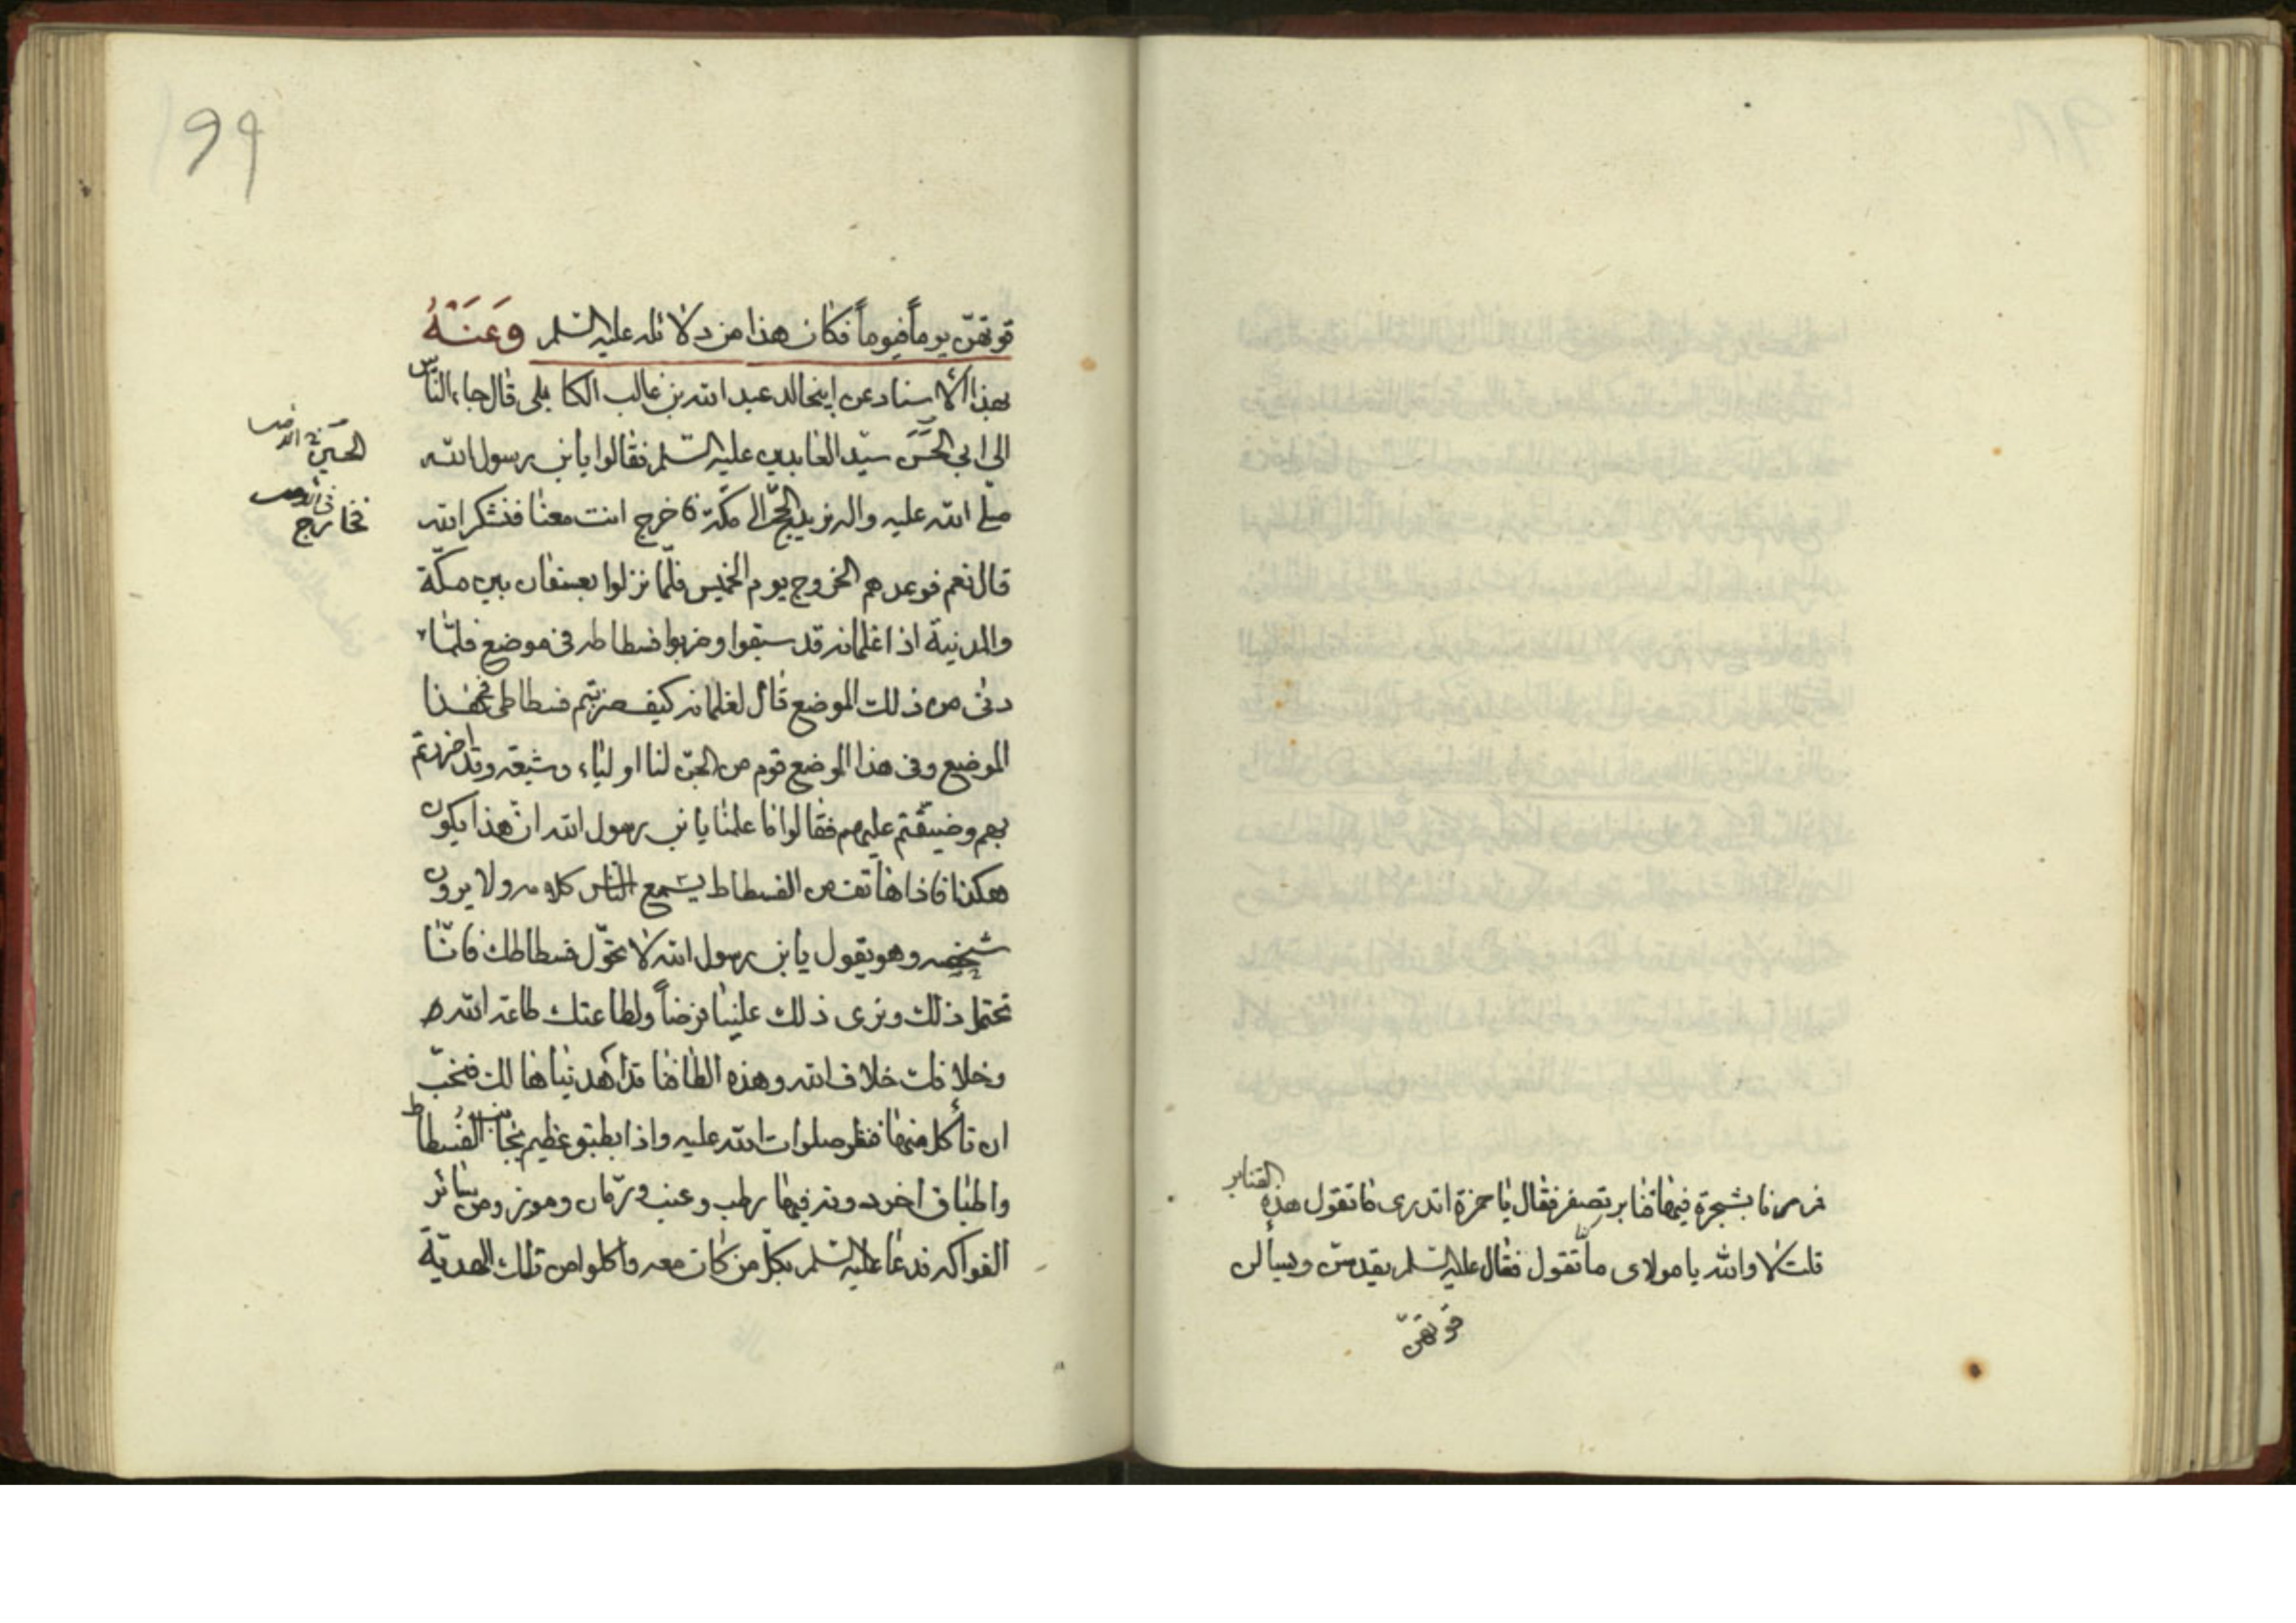 فمررنا بشجرة فيها قنابر تصفر فقال يا حمزة اتدرى ما تقول هذه القنابر
قلت لا والله يا مولاى ما تقول فقال عليه السلم يقدسن ويسألن
قوتهنّ
99
قوتهنّ يوماً فيوماً فكان هذا من دلائله عليه السلم وَعَنْهُ
بهذا الاسناد عن ابيخالد عبد الله بن غالب الكابلى قال جاء الناس
الى ابي الحسن سيّد العابدين عليه السلم فقالوا يا بن رسول الله
صلى الله عليه واله نريد الحجّ الى مكّة فاخرج انت معنا فنشكر الله
قال نعم فوعدهم الخروج يوم الخميس فلمّا نزلوا بعسفان بين مكّة
والمدينة اذا غلمانه قد سبقوا وضربوا فسطاطه فى موضع فلمّا
دنى من ذلك الموضع قال لغلمانه كيف ضربتم فسطاطى فى هذا
الموضع وفى هذا الموضع قوم من الجنّ لنا اولياء وشيعة وقد اضررتم
بهم وضيقتم عليهم فقالوا ما علمنا يا بن رسول الله انّ هذا يكون
هكذا فاذا هاتف من الفسطاط يسمع الناس كلامه ولا يرون
شخصه وهو يقول يا بن رسول الله لا تحوّل فسطاطك فانّا
نحتمل ذلك ونرى ذلك علينا فرضاً ولطاعتك طاعة الله
وخلافك خلاف الله وهذه الطافنا قد اهديناها لك فنحبّ
ان تأكل منها فنظر صلوات الله عليه واذا بطبق عظيم بجانب الفسطاط
واطباق اخر دونه فيها رطب وعنب ورمّان وموز ومن سائر
الفواكه فدعا عليه السلم بكلّ من كان معه فاكلوا من تلك الهديّة
الحسين
فخارج